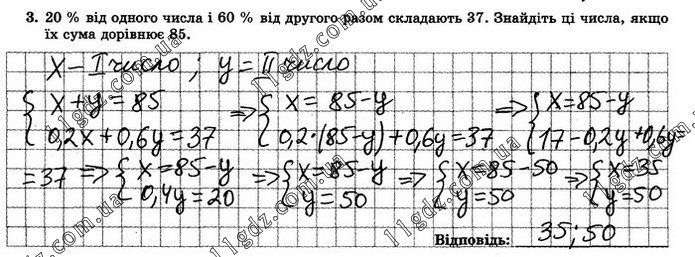 3. 20 % від одного числа і 60 % від другого разом складають 37. Знайдіть ці числа, якщо
їх сума дорівнює 85.
x – I число ; y = II число
{ x + y = 85 => { x = 85 – y => { x = 85 – y
{ 0,2x + 0,6y = 37 { 0,2·(85–y) + 0,6y = 37 { 17 – 0,2y + 0,6y =
= 37 => { x = 85 – y => { x = 85 – y => { x = 85 – 50 => { x = 35
{ 0,4y = 20 { y = 50 { y = 50 { y = 50
Відповідь: 35 ; 50
11gdz.com.ua